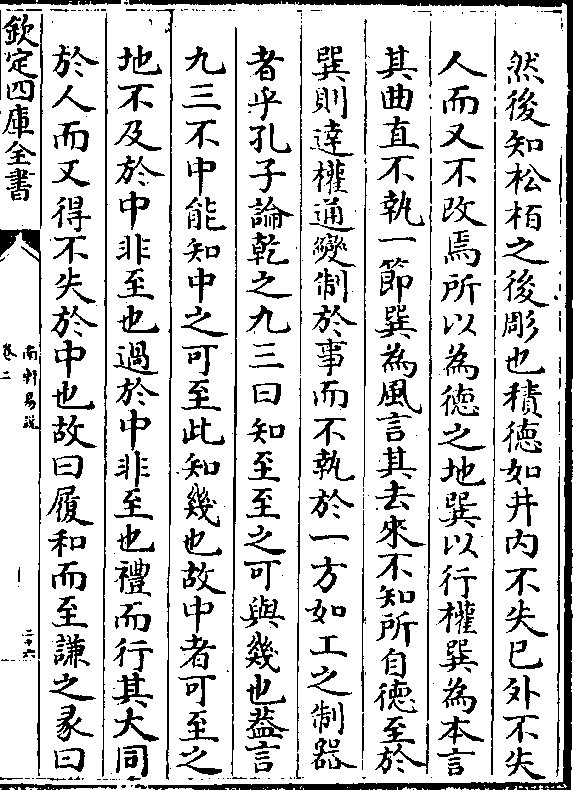 然後知松栢之後彫也積德如井内不失已外不失
人而又不改焉所以為德之地巽以行權巽為木言
其曲直不執一節巽為風言其去來不知所自德至於
巽則達權通變制於事而不執於一方如工之制器
者乎孔子論乾之九三曰知至至之可與幾也葢言
九三不中能知中之可至此知幾也故中者可至之
地不及於中非至也過於中非至也禮而行其大同
於人而又得不失於中也故曰履和而至謙之彖曰
欽定四庫全書
南軒易說
卷二
二十六